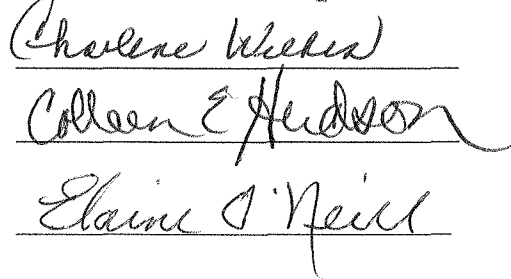 Charlene Wilkin
Colleen E Hudson
Elaine O'Neill